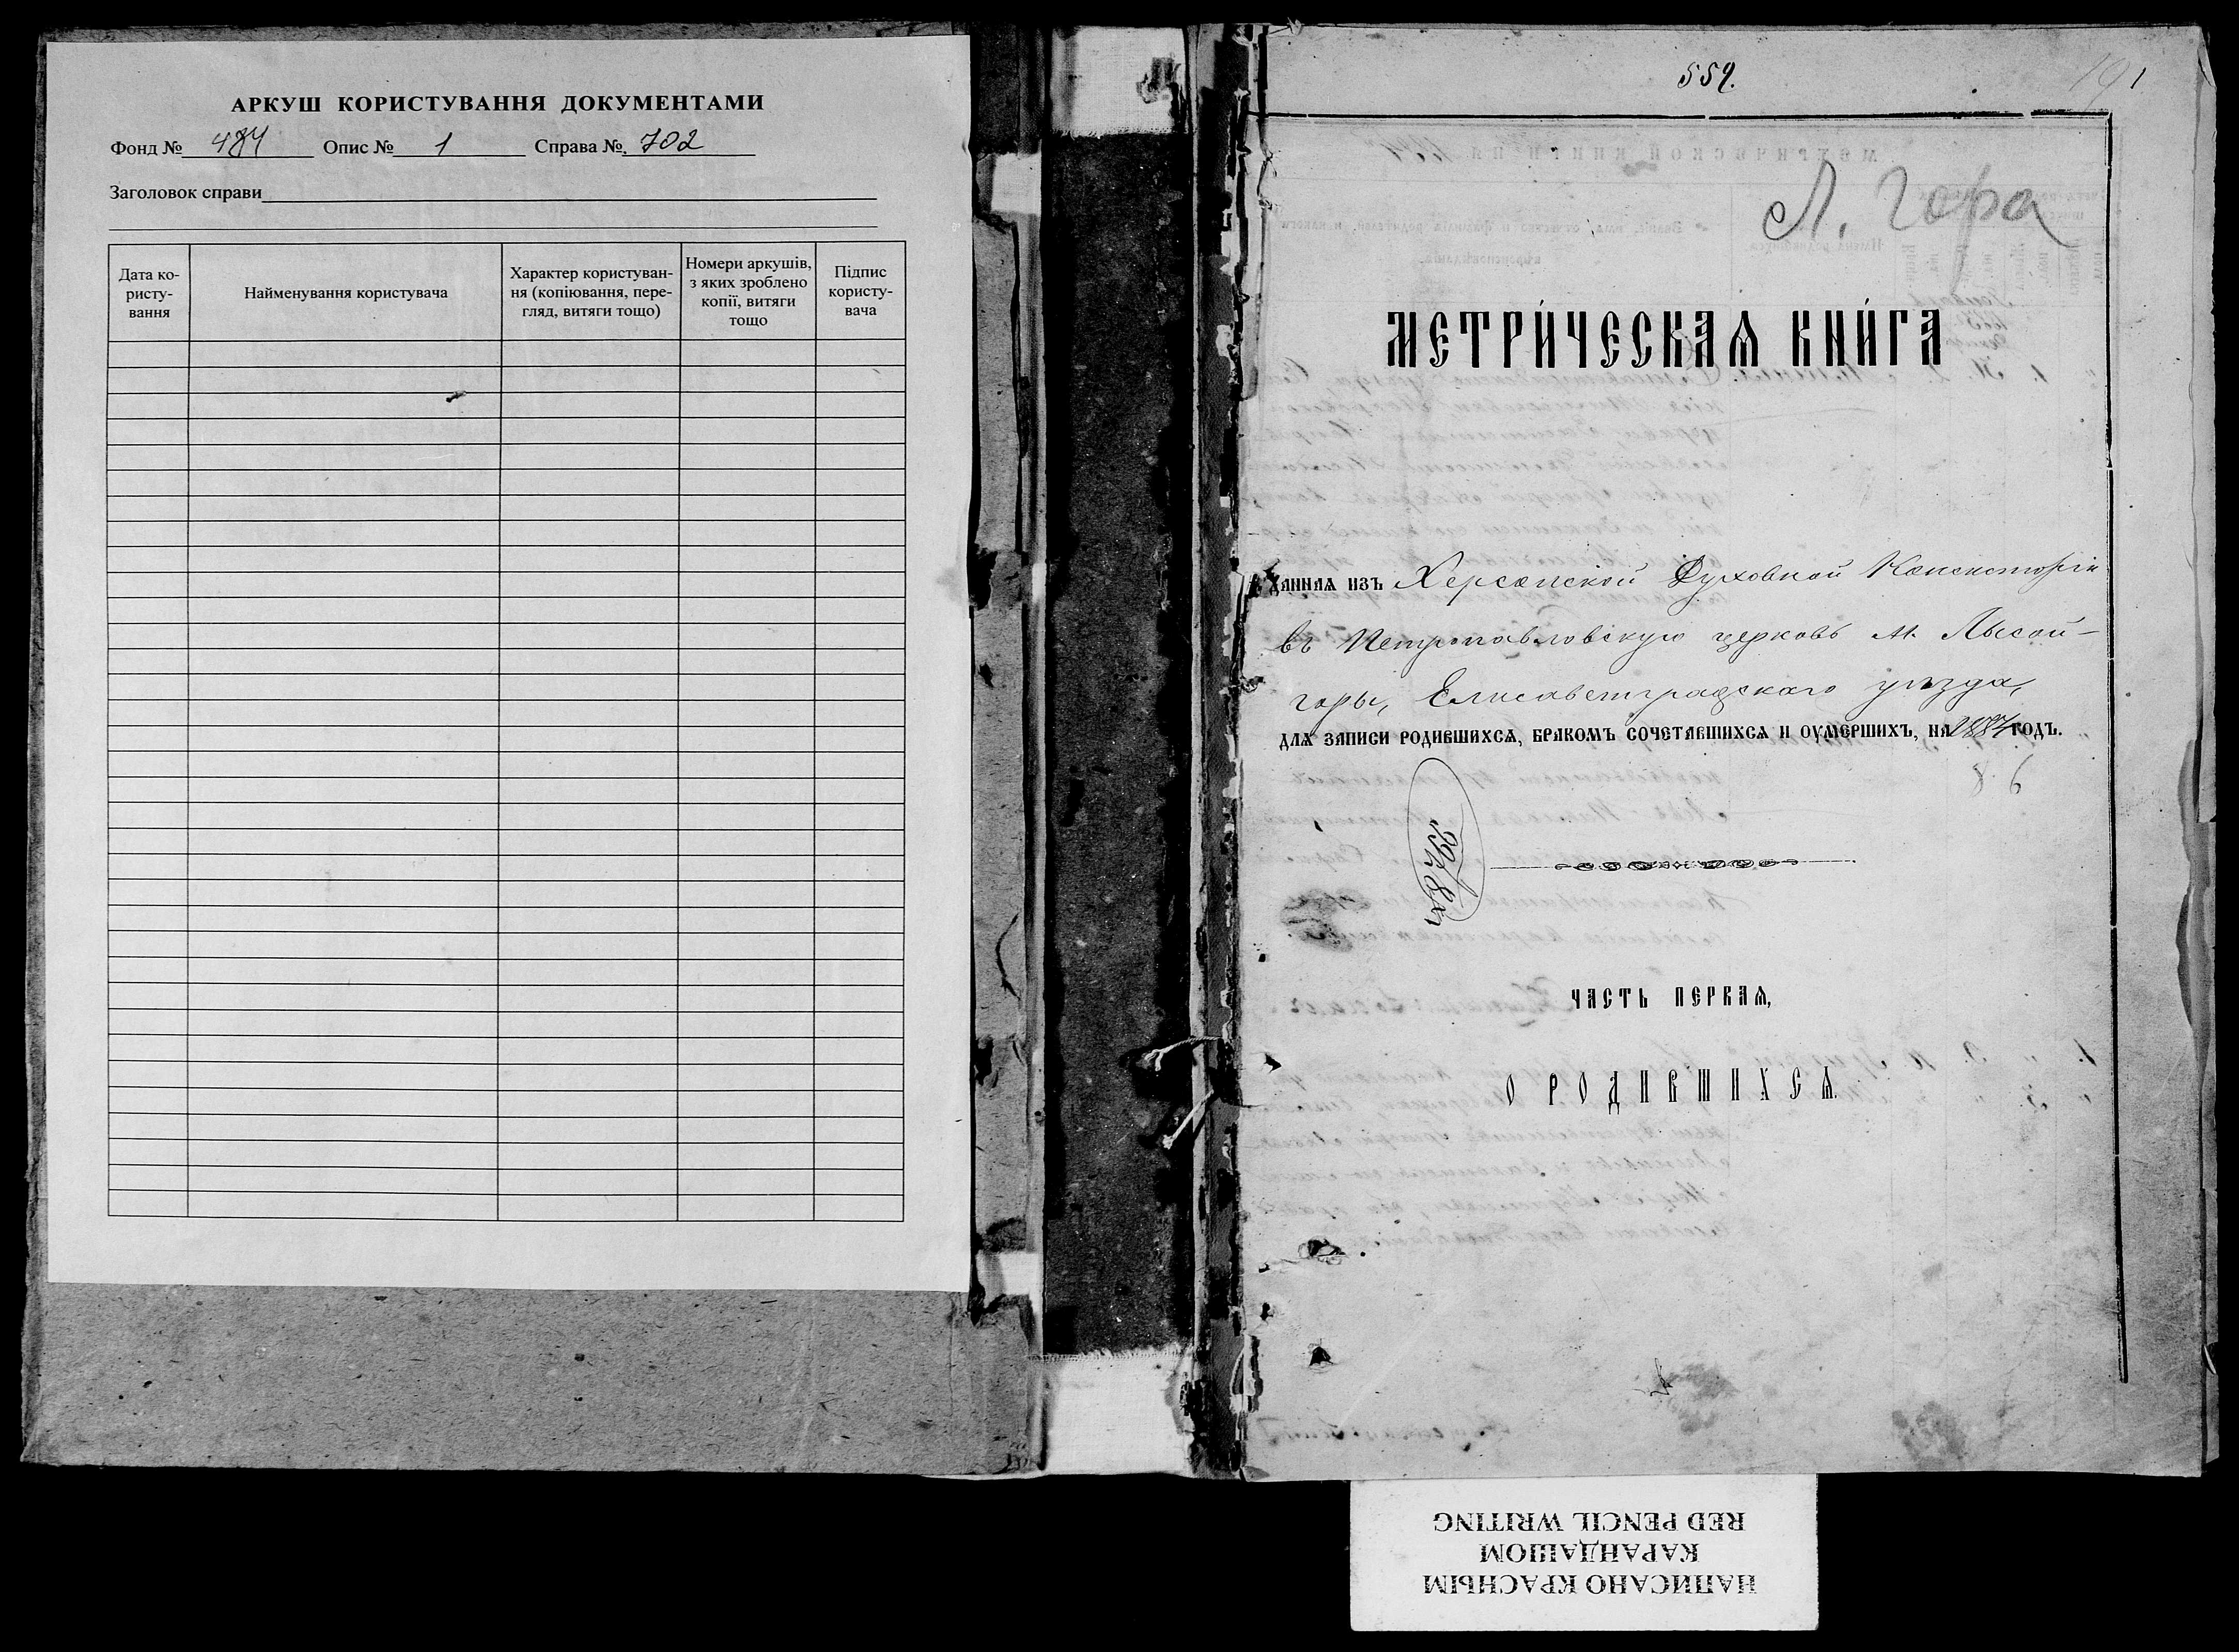 АРКУШ КОРИСТУВАННЯ ДОКУМЕНТАМИ
Фонд № 484 Опис № 1 Справа № 702
Заголовок справи
Дата ко-
ристу-
вання
Найменування користувача
Характер користуван-
ня (копіювання, пере-
гляд, витяги тощо)
Номери аркушів,
з яких зроблено
копії, витяги
тощо
Підпис
користу-
вача
559.
Л. Гора
МЕТРИ́ЧЕСКАѦ КНИ́ГА
ДАННАѦ ИЗЪ Херсонской Духовной Консисторіи
въ Петропавловскую церковь м. Лысой-
горы, Елисаветградскаго уѣзда,
ДЛѦ ЗАПИСИ РОДИВШИХСѦ, БРАКОМЪ СОЧЕТАВШИХСѦ И ОУМЕРШИХЪ, НА 1884 ГОДЪ.
8 6
ЧАСТЬ ПЕРВАѦ,
О РОДИВШИХСѦ.
НАПИСАНО КРАСНЫМ
КАРАНДАШОМ
RED PENCIL WRITING